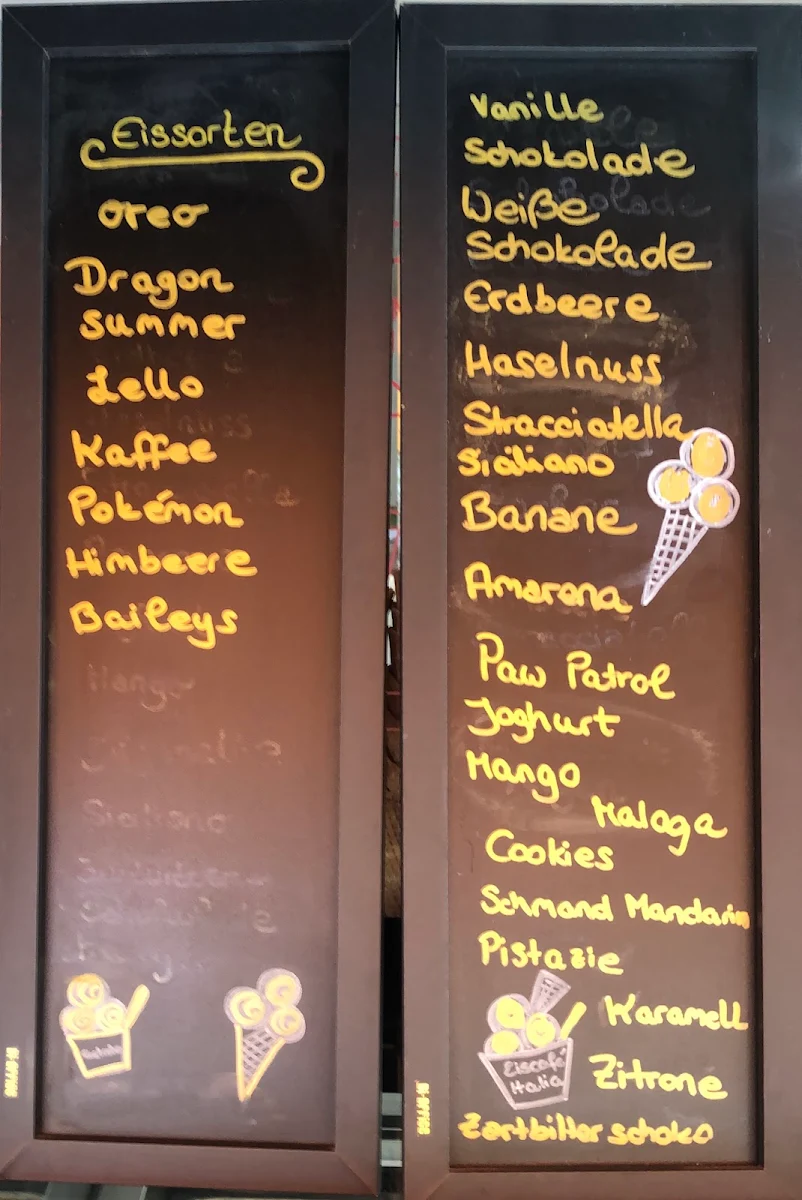 Eissorten
Oreo
Dragon
Summer
Lello
Kaffee
Pokémon
Himbeere
Baileys
Mango
Siciliano
Vanille
Schokolade
Weiße
Schokolade
Erdbeere
Haselnuss
Stracciatella
Siciliano
Banane
Amarena
Paw Patrol
Joghurt
Mango
Malaga
Cookies
Schmand Mandarin
Pistazie
Karamell
Eiscafé
Italia
Zitrone
Zartbitter schoko